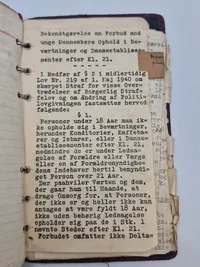 Bekendtgørelse om Forbud mod
unge Menneskers Ophold i Be-
værtninger og Danseetablisse-
menter efter Kl. 21.
I Medfør af § 2 i midlertidig
Lov Nr. 219 af 1. Maj 1940 om
skærpet Straf for visse Over-
trædelser af Borgerlig Straf-
felov og om Ændring af Politi-
lovgivningen fastsættes herved
følgende:
§ 1.
Personer under 18 Aar maa ik-
ke opholde sig i Beværtninger,
herunder Konditorier, Kaffebar-
er og Barer, eller i Danse-
etablissementer efter Kl. 21,
medmindre de er under Leda-
gelse af Forældre eller Værge
eller en af Forældremyndighe-
dens Indehaver hertil bemyndi-
get Person over 21 Aar.
Det paahviler Værten og den,
der gaar ham til Haande, at
drage Omsorg for, at Personer,
der ikke er og heller ikke kan
antages at være fyldt 18 Aar,
ikke uden behørig Ledsagelse
opholder sig paa de i Stk. 1
nævnte Steder efter Kl. 21.
Forbudet omfatter ikke Delta-